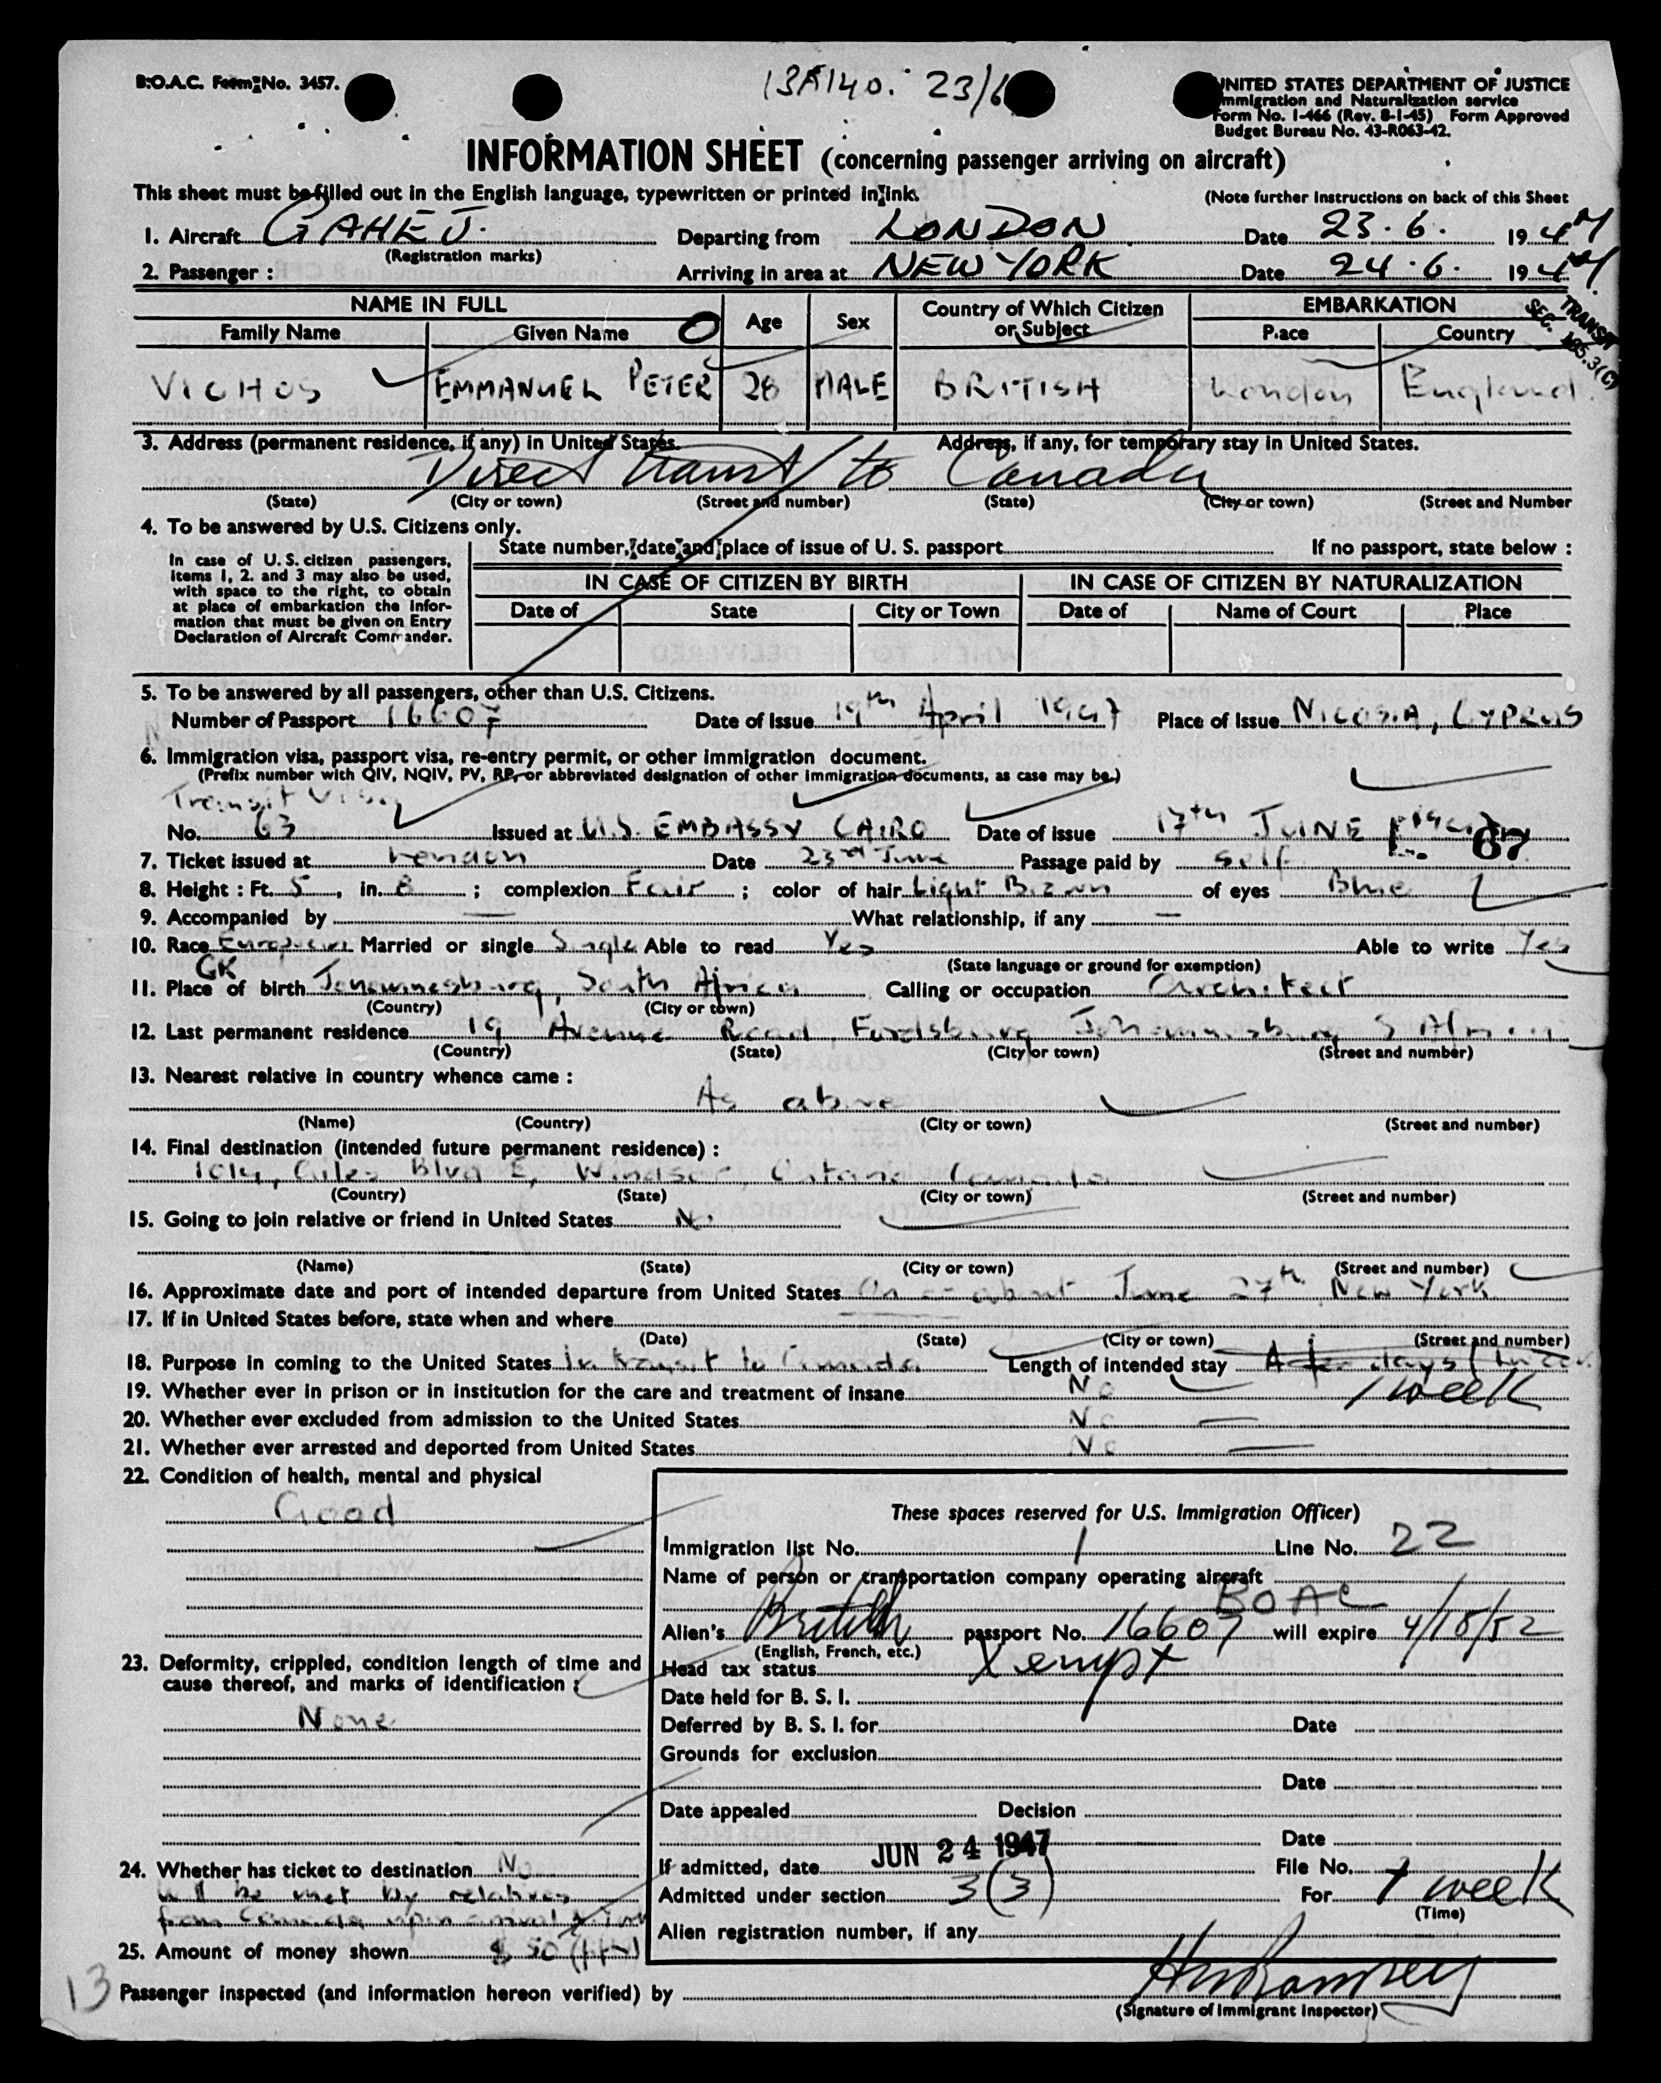 B.O.A.C. Form No. 3457.
13A140. 23/6
UNITED STATES DEPARTMENT OF JUSTICE
Immigration and Naturalization service
Form No. I-466 (Rev. 8-1-45) Form Approved
Budget Bureau No. 43-R063-42.
INFORMATION SHEET (concerning passenger arriving on aircraft)
This sheet must be filled out in the English language, typewritten or printed in ink.
(Note further Instructions on back of this Sheet
1. Aircraft GAHEJ. Departing from LONDON Date 23.6. 1947
(Registration marks)
2. Passenger : Arriving in area at NEW YORK Date 24.6. 1947
TRANSIT
SEC. 165.3(C)
NAME IN FULL Age Sex Country of Which Citizen or Subject EMBARKATION
Family Name Given Name Place Country
VICHOS EMMANUEL PETER 28 MALE BRITISH London England.
3. Address (permanent residence, if any) in United States. Address, if any, for temporary stay in United States.
Direct transit to Canada
(State) (City or town) (Street and number) (State) (City or town) (Street and Number
4. To be answered by U.S. Citizens only.
State number, date and place of issue of U. S. passport If no passport, state below :
In case of U. S. citizen passengers,
items 1, 2. and 3 may also be used,
with space to the right, to obtain
at place of embarkation the infor-
mation that must be given on Entry
Declaration of Aircraft Commander.
IN CASE OF CITIZEN BY BIRTH IN CASE OF CITIZEN BY NATURALIZATION
Date of State City or Town Date of Name of Court Place
5. To be answered by all passengers, other than U.S. Citizens.
Number of Passport 16607 Date of Issue 19th April 1947 Place of Issue NICOSIA, CYPRUS
6. Immigration visa, passport visa, re-entry permit, or other immigration document.
(Prefix number with QIV, NQIV, PV, RP, or abbreviated designation of other immigration documents, as case may be.)
Transit Visa
No. 63 Issued at U.S. EMBASSY CAIRO Date of issue 17th JUNE 1947
67
7. Ticket issued at London Date 23rd June Passage paid by self
8. Height : Ft. 5, in. 8 ; complexion Fair ; color of hair Light Brown of eyes Blue
9. Accompanied by — What relationship, if any —
10. Race European Married or single Single Able to read Yes Able to write Yes
GK (State language or ground for exemption)
11. Place of birth Johannesburg, South Africa Calling or occupation Architect
(Country) (City or town)
12. Last permanent residence 19 Avenue Road, Fordsburg Johannesburg S Africa
(Country) (State) (City or town) (Street and number)
13. Nearest relative in country whence came :
As above
(Name) (Country) (City or town) (Street and number)
14. Final destination (intended future permanent residence) :
1014, Giles Blvd E, Windsor, Ontario Canada
(Country) (State) (City or town) (Street and number)
15. Going to join relative or friend in United States No
(Name) (State) (City or town) (Street and number)
16. Approximate date and port of intended departure from United States On or about June 27th New York
17. If in United States before, state when and where
(Date) (State) (City or town) (Street and number)
18. Purpose in coming to the United States In transit to Canada Length of intended stay A few days
1 week
19. Whether ever in prison or in institution for the care and treatment of insane No
20. Whether ever excluded from admission to the United States No —
21. Whether ever arrested and deported from United States No —
22. Condition of health, mental and physical
Good
23. Deformity, crippled, condition length of time and
cause thereof, and marks of identification :
None
24. Whether has ticket to destination No
will be met by relatives
from Canada upon arrival
25. Amount of money shown $ 50
These spaces reserved for U.S. Immigration Officer)
Immigration list No. 1 Line No. 22
Name of person or transportation company operating aircraft
BOAC
Alien's British passport No. 16607 will expire 4/18/52
(English, French, etc.)
Head tax status Xempt
Date held for B. S. I.
Deferred by B. S. I. for Date
Grounds for exclusion
Date
Date appealed Decision
Date
If admitted, date JUN 24 1947 File No.
Admitted under section 3(3) For 1 week
(Time)
Alien registration number, if any
13
Passenger inspected (and information hereon verified) by
(Signature of Immigrant Inspector)